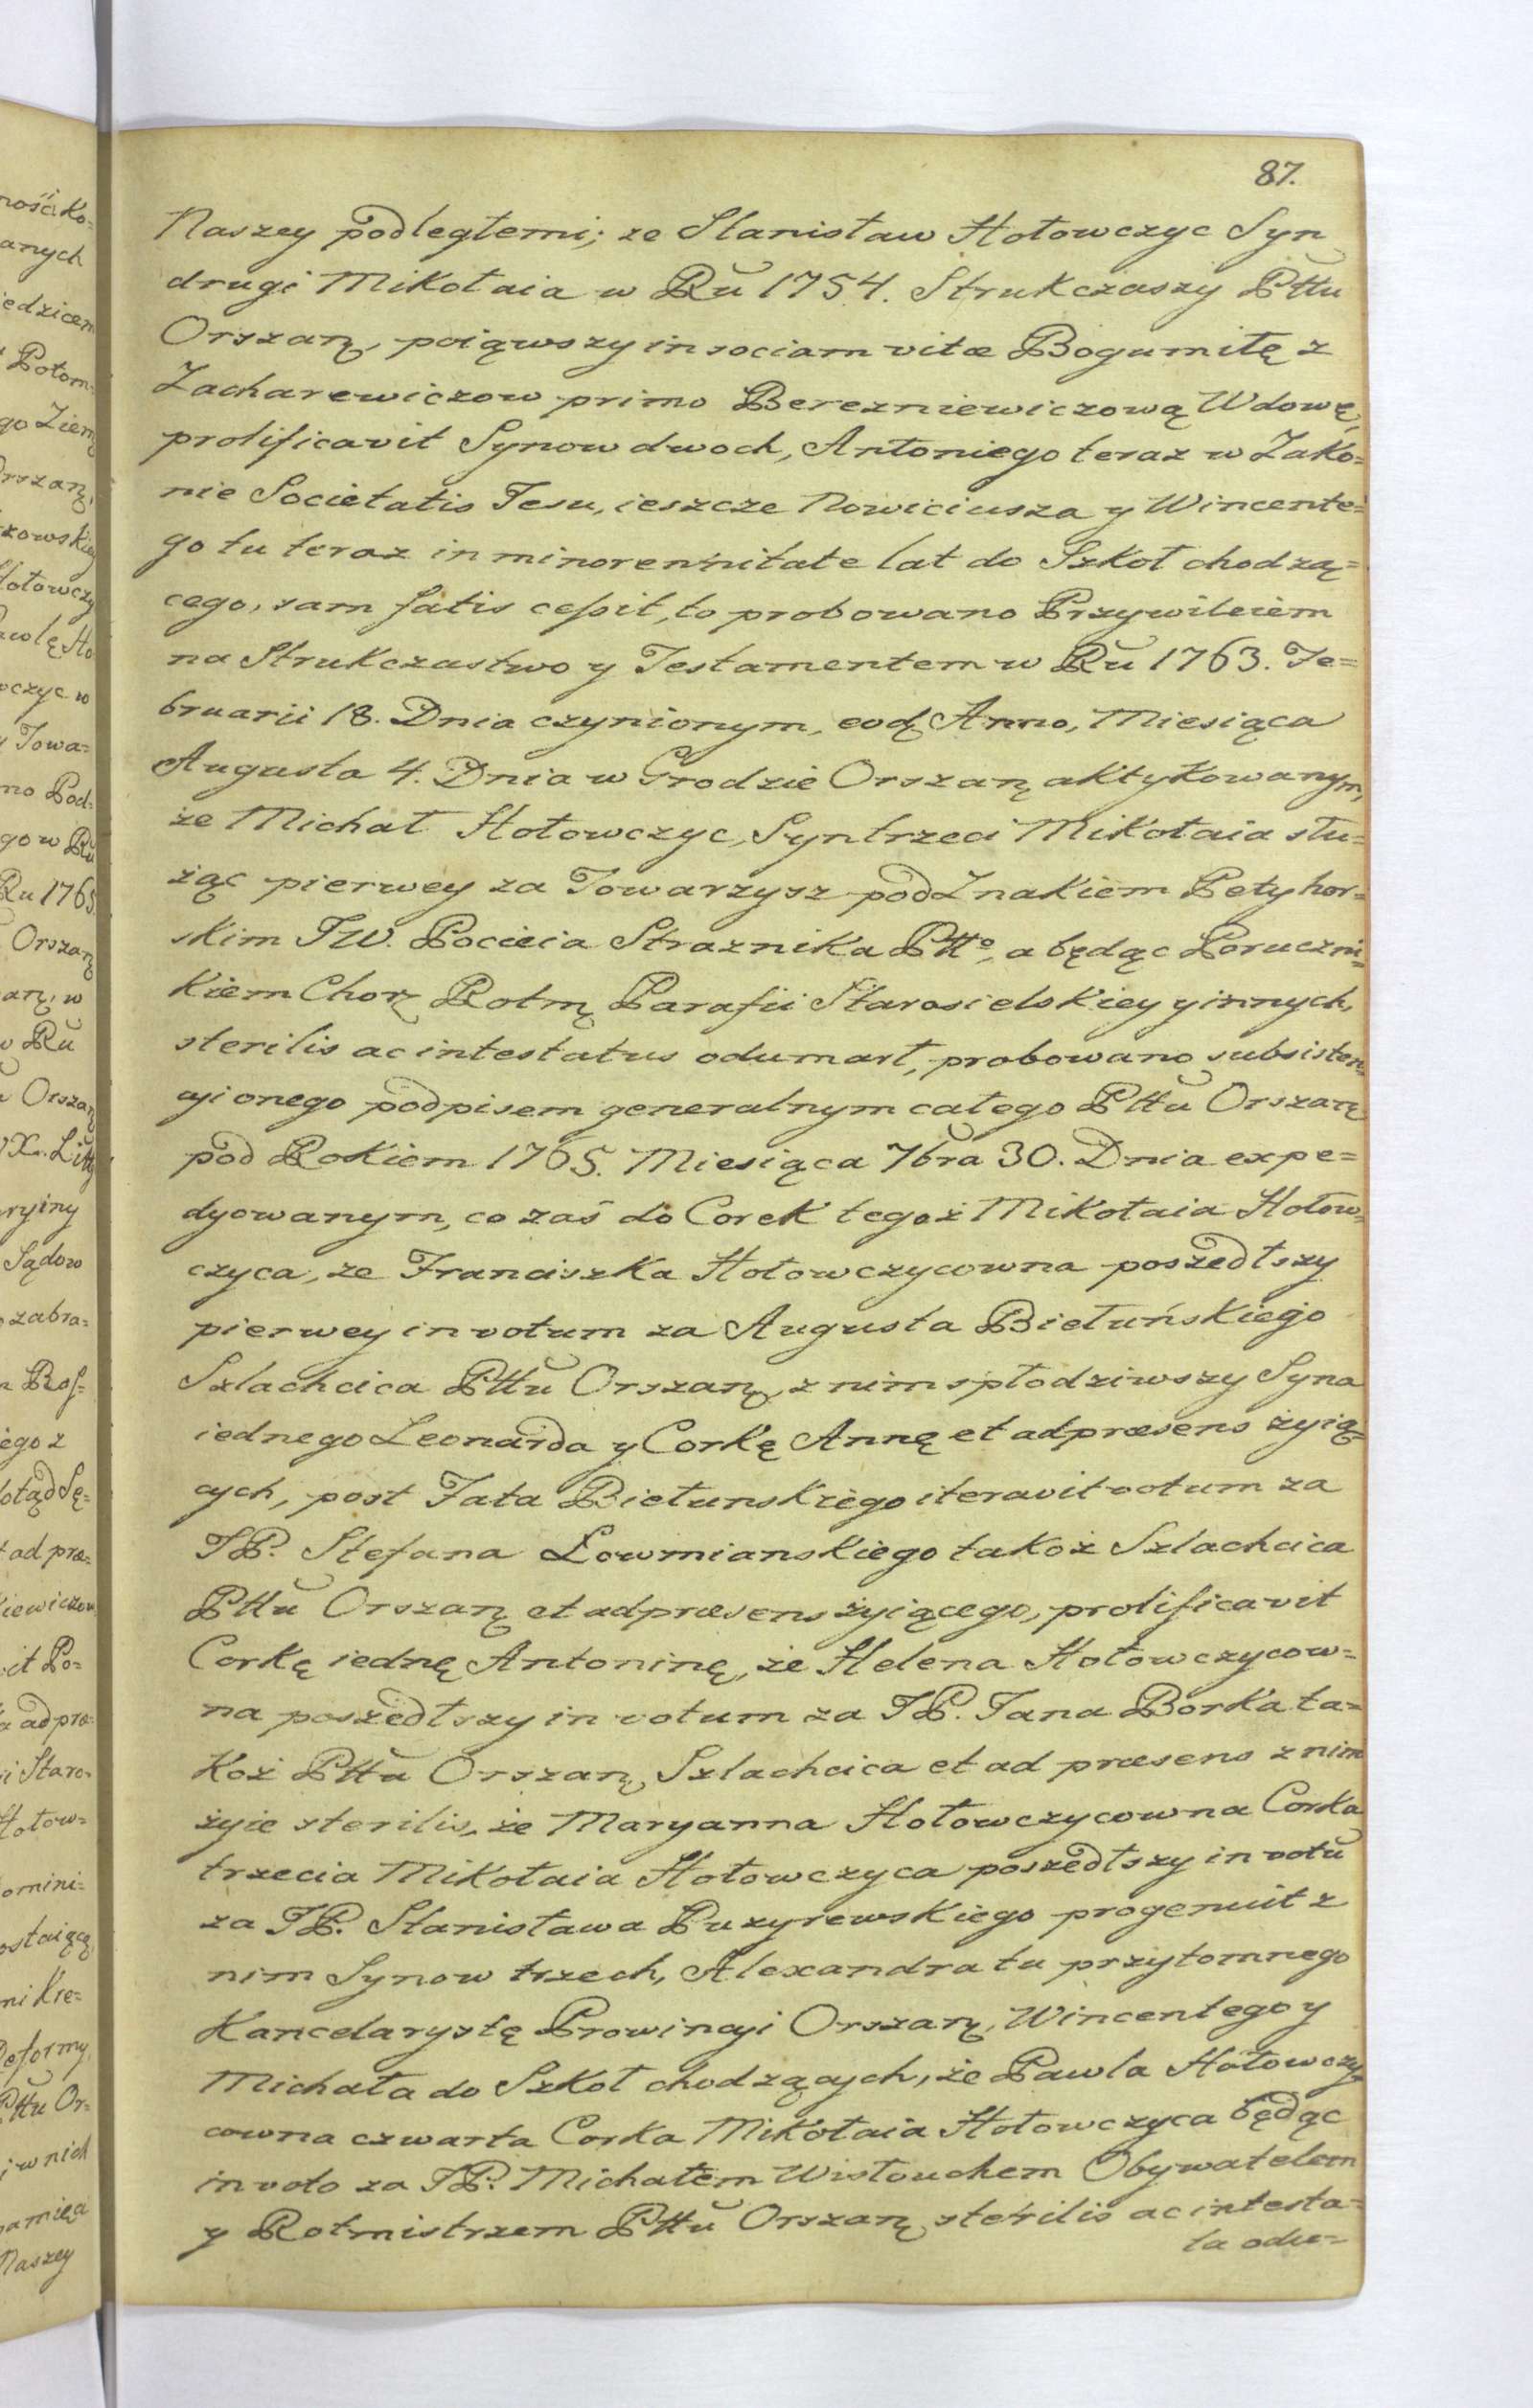 87.
Naszey podległemi; ze Stanisław Hołowczyc Syn
drugi Mikołaia w Ru 1754. Strukczaszy Pttu
Orszan, poiąwszy in sociam vitæ Bogumiłę z
Zacharewiczow primo Berezniewiczową Wdowę,
prolificavit Synow dwoch, Antoniego teraz w Zako=
nie Societatis Jesu, ieszcze Nowiciusza y Wincente=
go tu teraz in minorennitate lat do Szkoł chodzą=
cego, sam fatis cessit, to probowano Przywileiem
na Strukczastwo y Testamentem w Ru 1763. Fe=
bruarii 18. Dnia czynionym, eod Anno, Miesiąca
Augusta 4. Dnia w Grodzie Orszan aktykowanym,
że Michał Hołowczyc, Syn trzeci Mikołaia słu=
żąc pierwey za Towarzysz pod Znakiem Petyhor=
skim JW. Pocieia Straznika Ptto, a będąc Poruczni=
kiem Chorz Rotm Parafii Starosielskiey y innych,
sterilis ac intestatus odumarł, probowano subsisten=
cyi onego podpisem generalnym całego Pttu Orszan
pod Rokiem 1765. Miesiąca 7bra 30. Dnia expe=
dyowanym, co zaś do Corek tegoż Mikołaia Hołow=
czyca, ze Franciszka Hołowczycowna poszedłszy
pierwey in votum za Augusta Biełuńskiego
Szlachcica Pttu Orszan, z nim spłodziwszy Syna
iednego Leonarda y Corkę Annę et ad præsens żyią=
cych, post Fata Biełunskiego iteravit votum za
JP. Stefana Łowmianskiego takoż Szlachcica
Pttu Orszan et ad præsens żyiącego, prolificavit
Corkę iednę Antoninę, że Helena Hołowczycow=
na poszedłszy in votum za JP. Jana Borka ta=
koż Pttu Orszan, Szlachcica et ad præsens z nim
żyie sterilis, że Maryanna Hołowczycowna Corka
trzecia Mikołaia Hołowczyca poszedłszy in votu
za JP. Stanisława Puzyrewskiego progenuit z
nim Synow trzech, Alexandra tu przytomnego
Kancelarystę Prowincyi Orszan, Wincentego y
Michała do Szkoł chodzących, że Pawla Hołowczy=
cowna czwarta Corka Mikołaia Hołowczyca będąc
in voto za JP. Michałem Wisłouchem Obywatelem
y Rotmistrzem Pttu Orszan sterilis ac intesta=
ta odu=